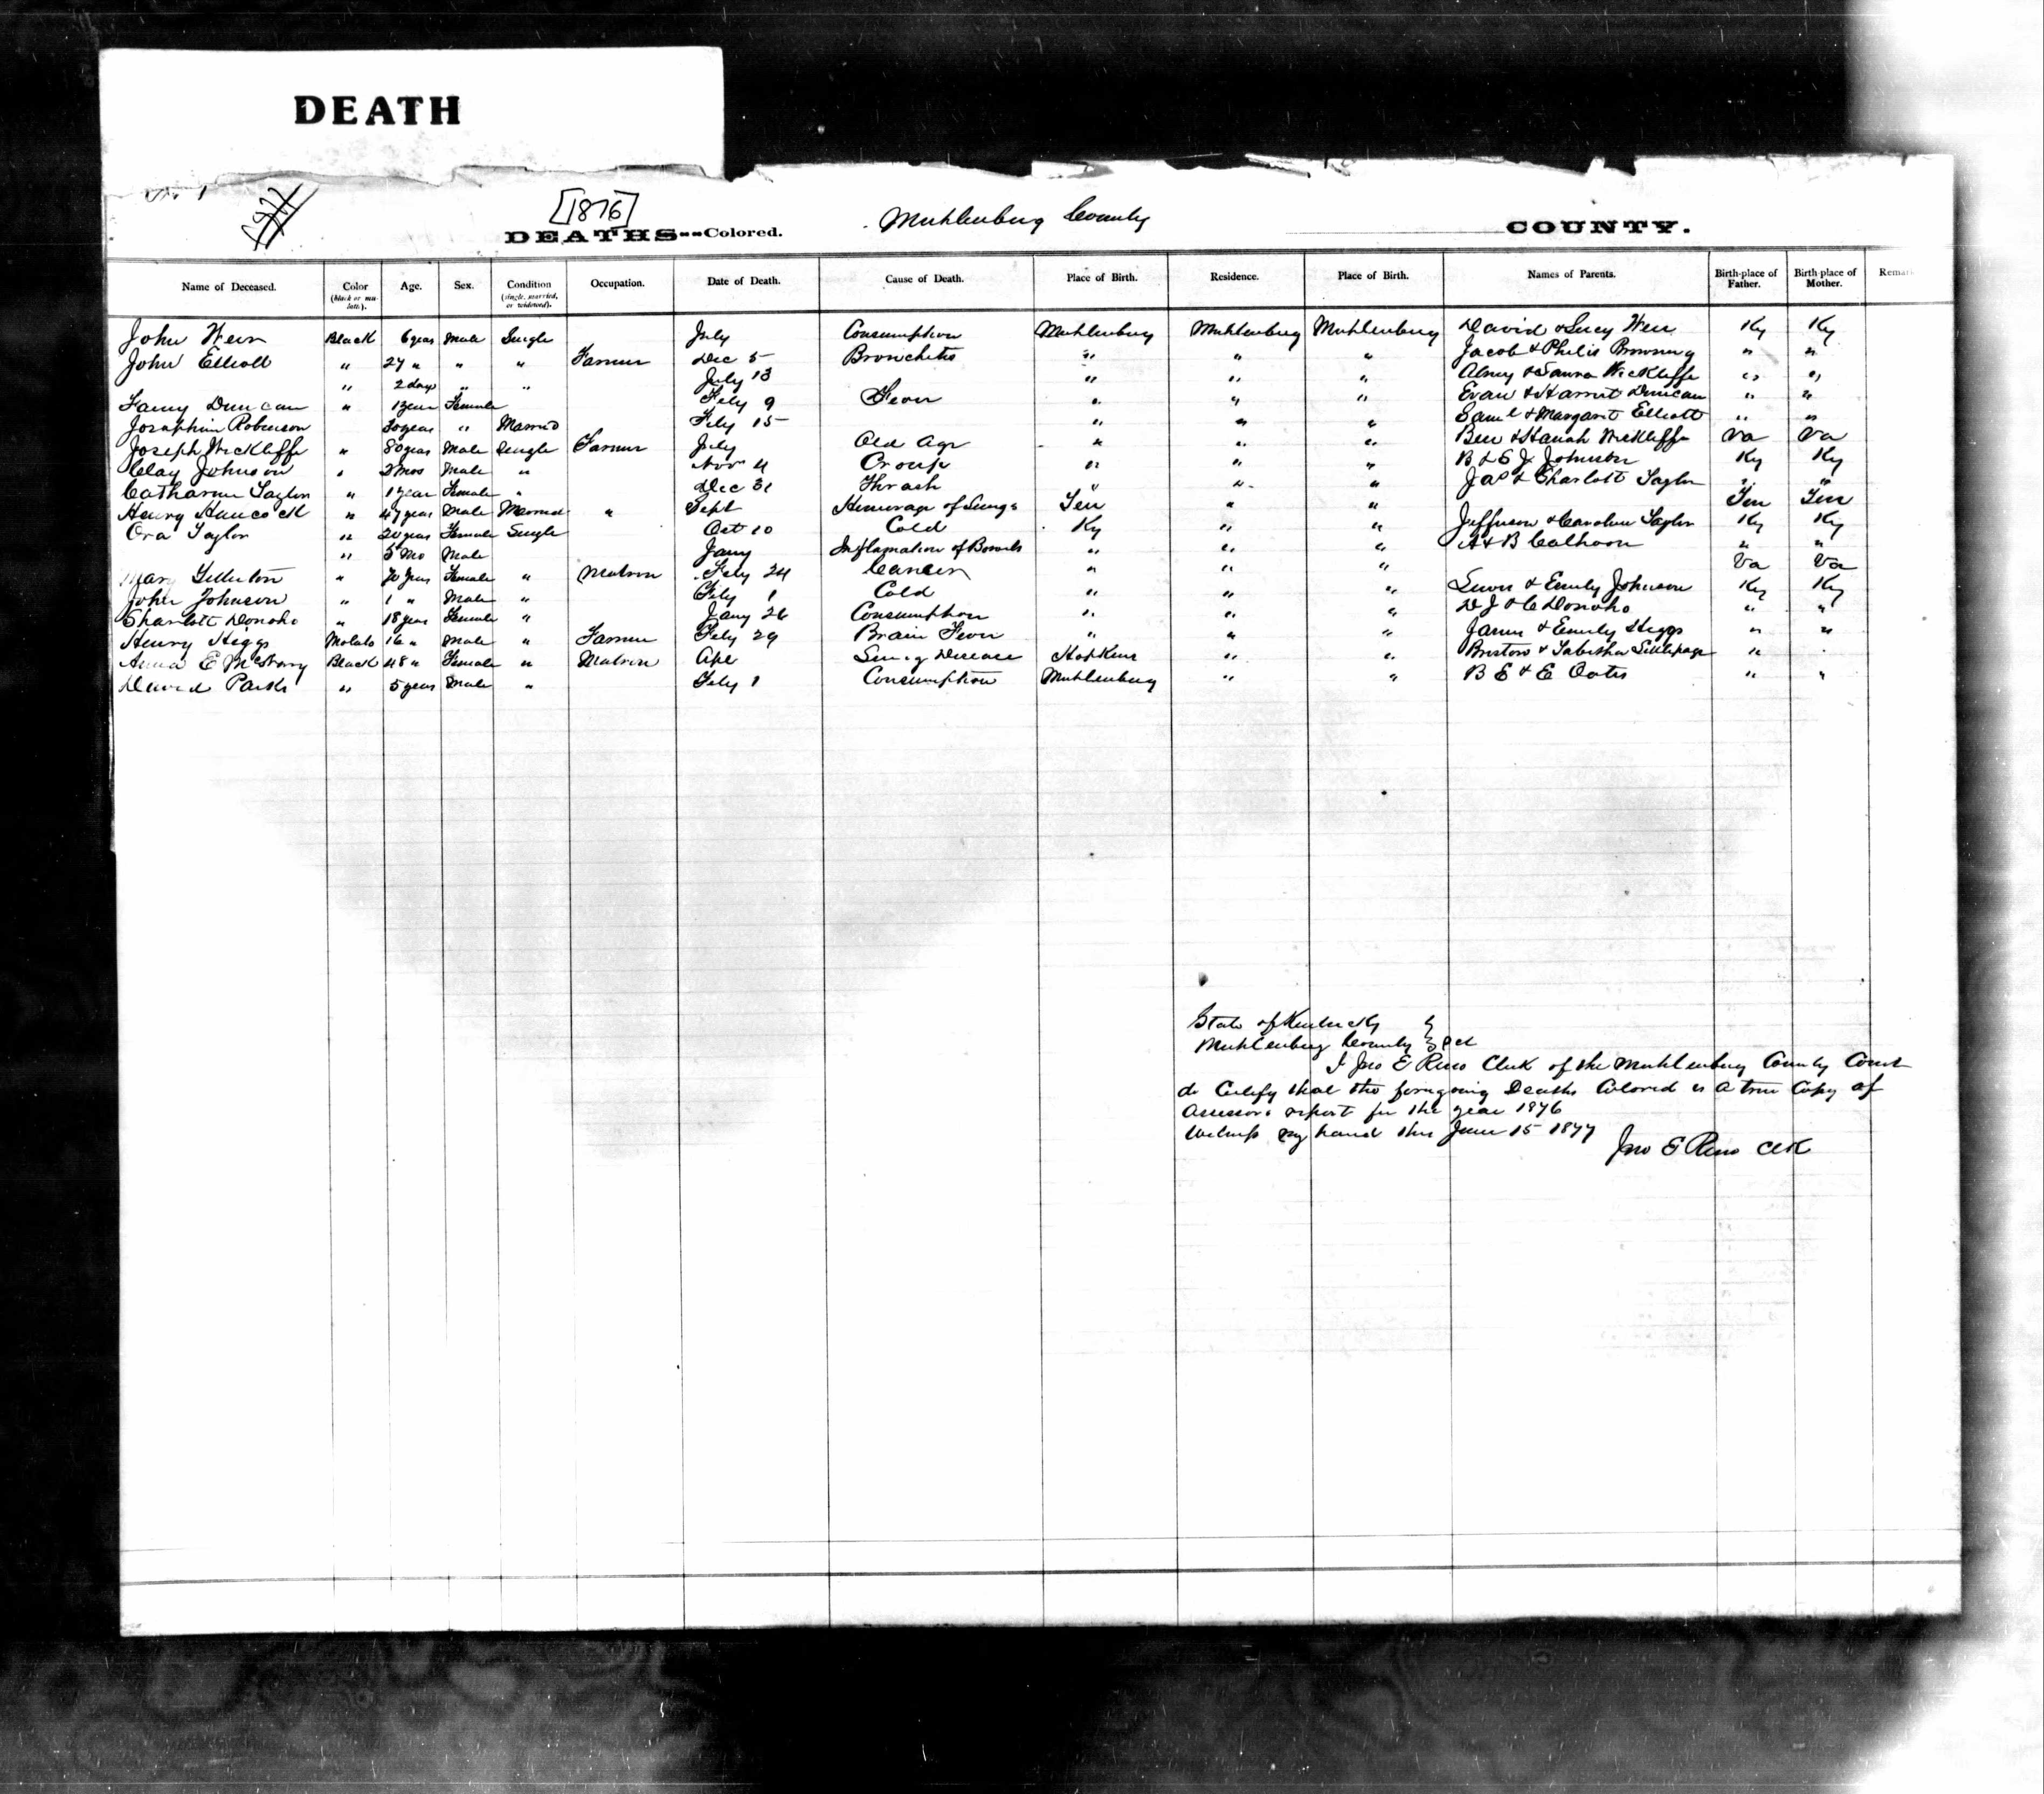 DEATH
No 1
[1876]
DEATHS--Colored. Muhlenburg County COUNTY.
Name of Deceased. Color (black or mulato). Age. Sex. Condition (single, married, or widowed). Occupation. Date of Death. Cause of Death. Place of Birth. Residence. Place of Birth. Names of Parents. Birth-place of Father. Birth-place of Mother. Remar
John Weir Black 6 years Male Single July Consumption Muhlenburg Muhlenburg Muhlenburg David & Lucy Weir Ky Ky
John Elliott " 27 " " " Farmer Dec 5 Bronchitis " " " Jacob & Philis Browning " "
" 2 days " " July 13 " " " Alney & Laura Wickliffe " "
Fanny Duncan " 1 year Female Feby 9 Fever " " " Evan & Harriet Duncan " "
Josephine Robinson 30 years " Married Feby 15 " " " Saml & Margaret Elliott " "
Joseph Wickliffe " 80 years Male Single Farmer July Old Age " " " Ben & Hanah Wickliffe Va Va
Clay Johnson " 2 mos Male " Nov 4 Croup " " " B & E J Johnson Ky Ky
Catharine Taylor " 1 year Female " Dec 31 Thrash " " " Jas & Charlott Taylor " "
Henry Hancock " 47 years Male Married " Sept Hemorage of Lungs Ten " " Ten Ten
Ora Taylor " 20 years Female Single Oct 10 Cold Ky " " Jefferson & Caroline Taylor Ky Ky
" 5 Mo Male Jany Inflamation of Bowels " " " A & B Calhoon " "
Mary " 70 years Female " Matron Feby 24 Cancer " " " Va Va
John Johnson " 1 " Male " Feby 1 Cold " " " Lewis & Emily Johnson Ky Ky
Charlott Donoho " 18 years Female " Jany 26 Consumption " " " D J & C Donoho " "
Henry Higgs Molato 16 " Male " Farmer Feby 29 Brain Fever " " " James & Emily Higgs " "
Anna E McNary Black 48 " Female " Matron Apl Lung Disease Hopkins " " Bristow & Tabitha Littlepage " "
David Parks " 5 years Male " Feby 1 Consumption Muhlenburg " " B E & E Oates " "
State of Kentucky }
Muhlenburg County } Sct
I Jno E Reno Clerk of the Muhlenburg County Court
do Certify that the foregoing Deaths Colored is a true Copy of
Assessors report for the year 1876
Witness my hand this June 15 1877
Jno E Reno Clk